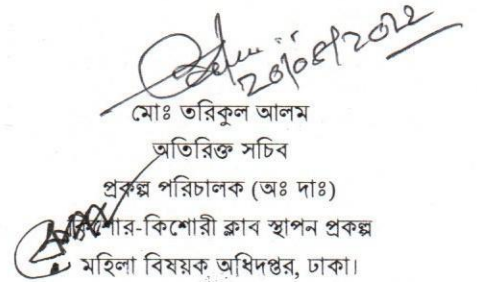 ২০/০৪/২০২২
মোঃ তরিকুল আলম
অতিরিক্ত সচিব
প্রকল্প পরিচালক (অঃ দাঃ)
কিশোর-কিশোরী ক্লাব স্থাপন প্রকল্প
মহিলা বিষয়ক অধিদপ্তর, ঢাকা।